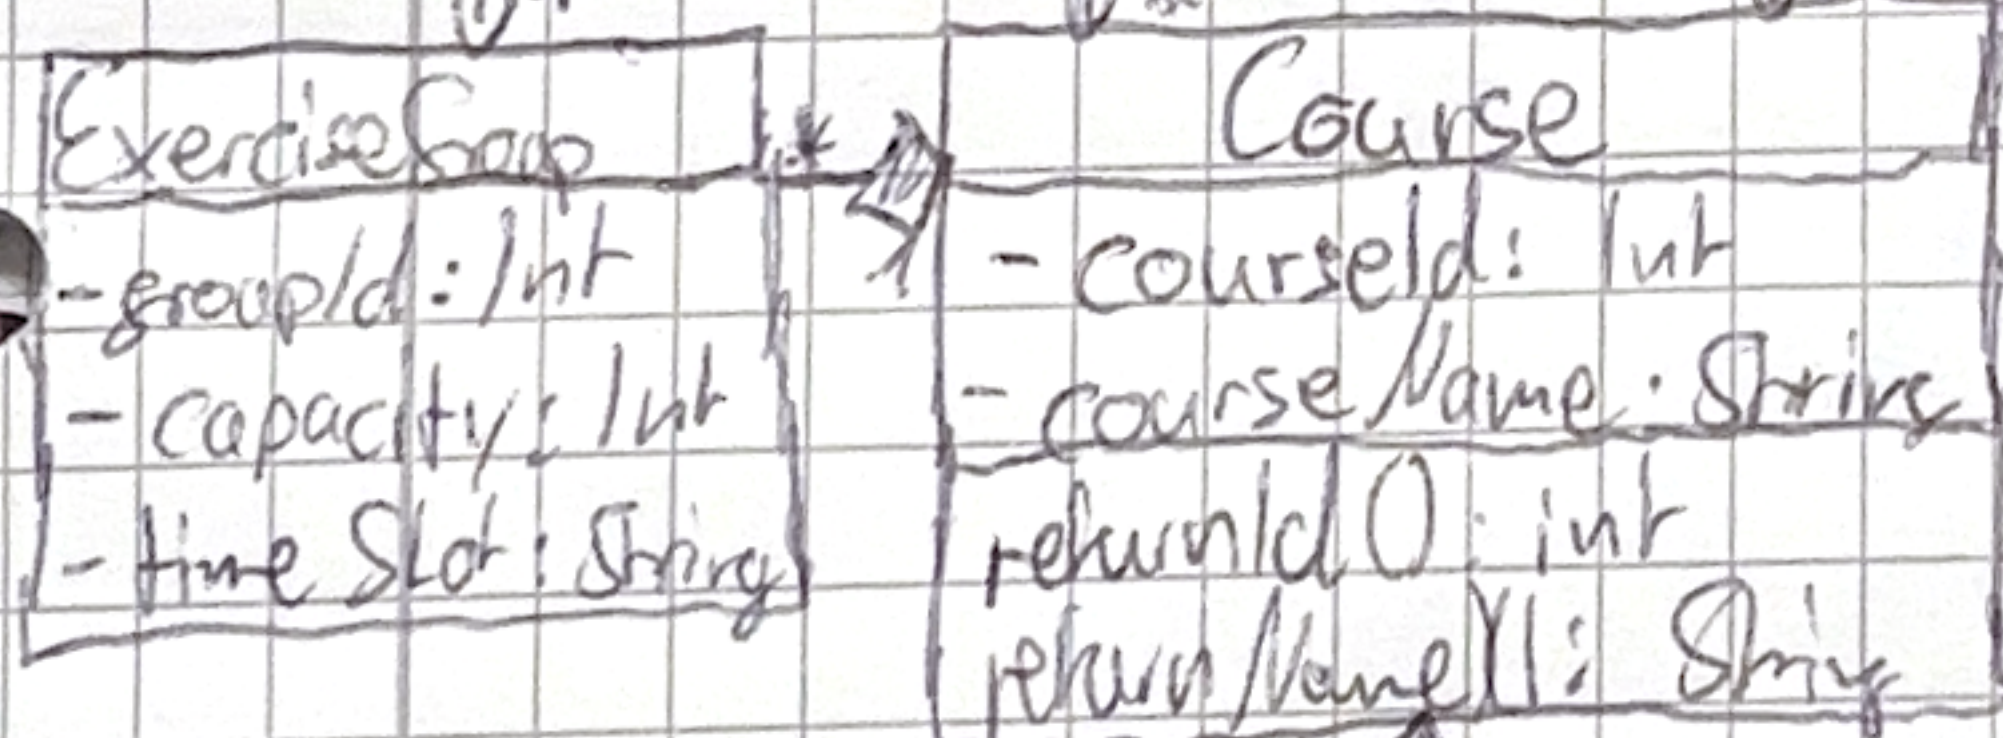 ExerciseGroup
- groupId : Int
- capacity : Int
- timeSlot : String
*
1
Course
- courseId : Int
- courseName : String
returnId() : int
returnName() : String